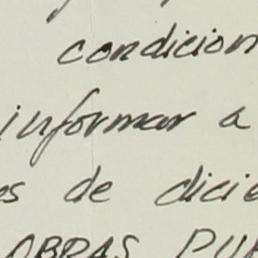 condicion
informar a
es de dicie
OBRAS PUB